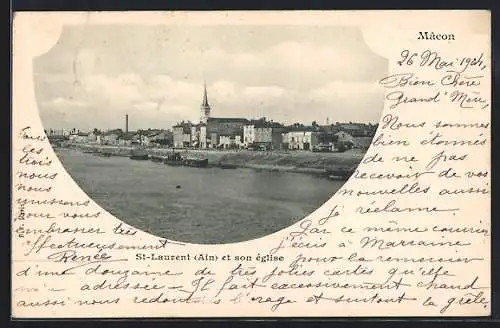 Mâcon
26 Mai 1904
Bien Chère
Grand' Mère,
Nous sommes
bien étonnés
de ne pas
recevoir de vos
nouvelles aussi
je réclame.
Par ce même courrier
j'écris à Marraine
pour la remercier
d'une douzaine de très jolies cartes qu'elle
m'a adressée - Il fait excessivement chaud
aussi nous redoutons l'orage et surtout la grêle
Tous
les
trois
nous
nous
unissons
pour vous
embrasser très
affectueusement
Renée
St-Laurent (Ain) et son église